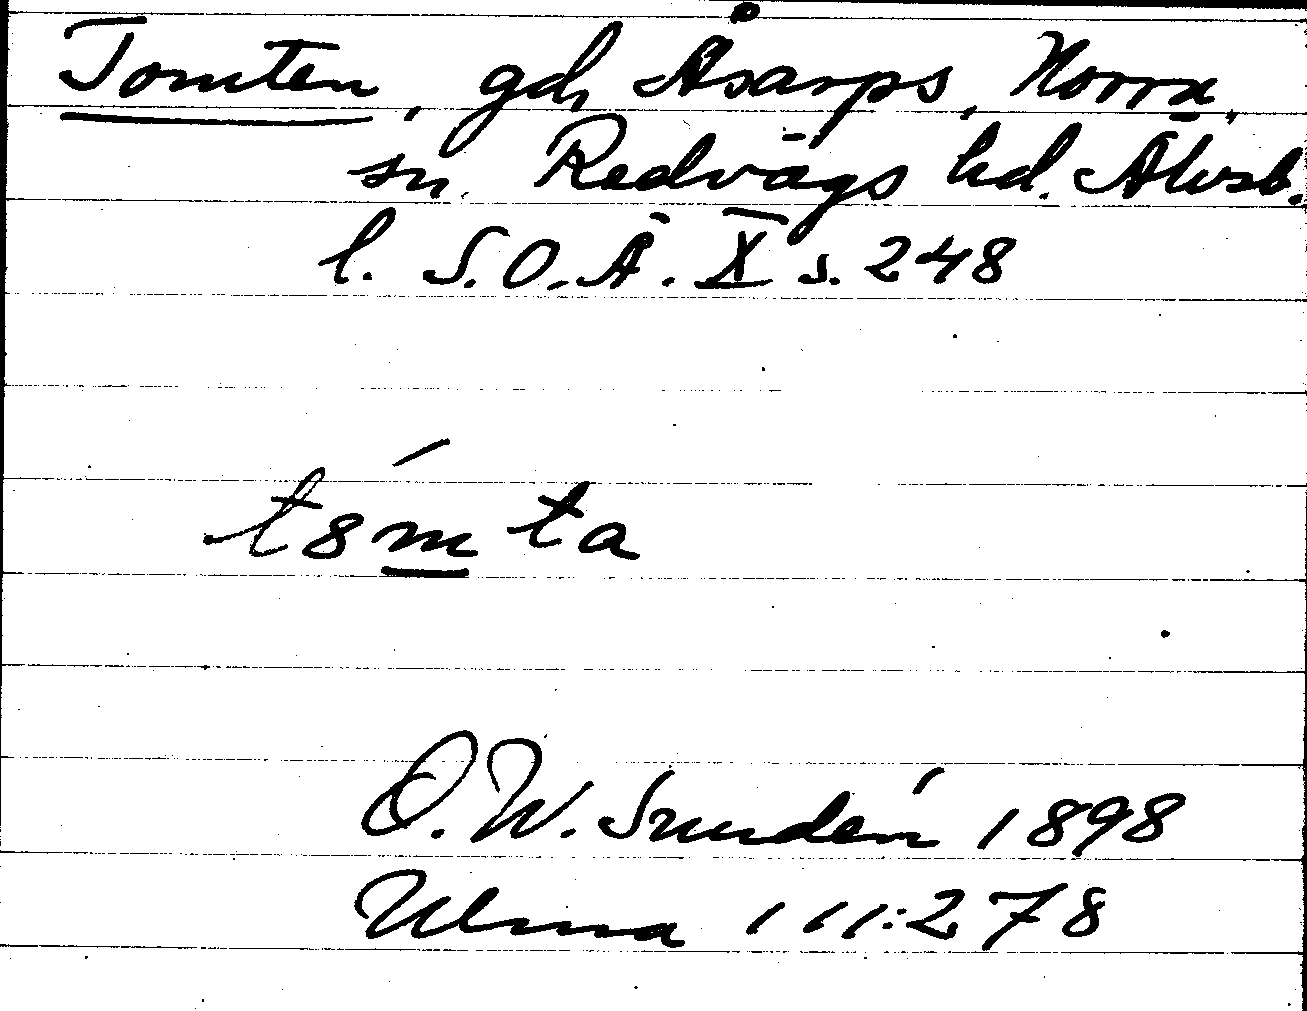 Tomten, gd, Åsarps, Norra,
sn, Redvägs hd. Älvsb.
l. S.O.Ä. X s. 248
t8́mta
O. W. Sundén 1898
Ulma 111:278